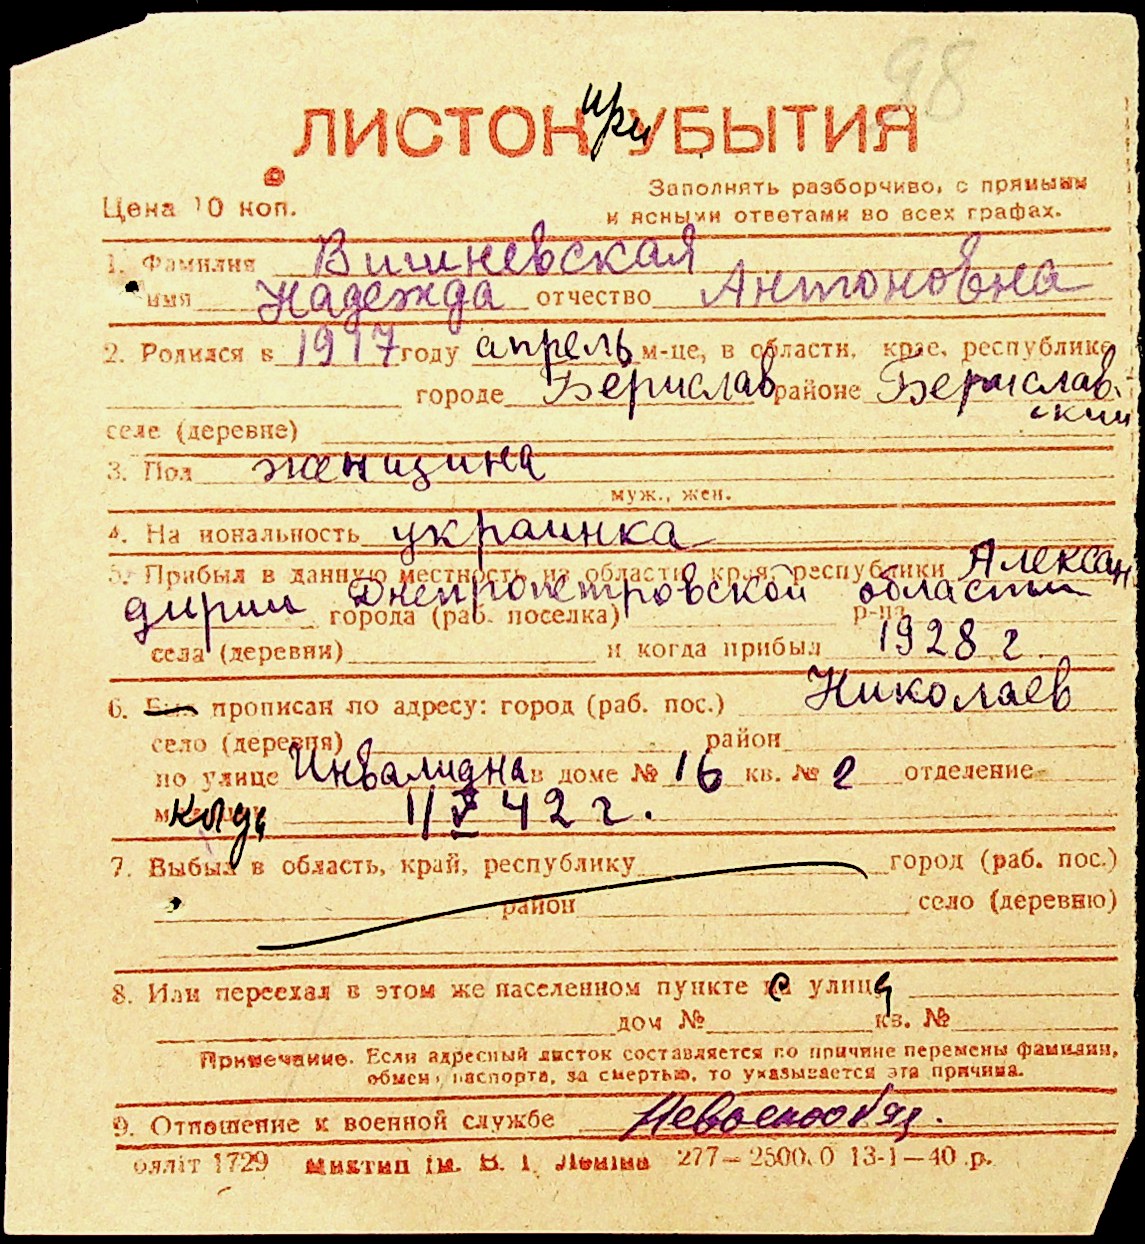 98
ЛИСТОК при УБЫТИЯ
Цена 10 коп.
Заполнять разборчиво, с прямыми
и ясными ответами во всех графах.
1. Фамилия Вишневская
имя Надежда отчество Антоновна
2. Родился в 1917 году апрель м-це, в области, крае, республике
городе Берислав районе Бериславский
селе (деревне)
3. Пол женщина
муж., жен.
4. Национальность украинка
5. Прибыл в данную местность из области, края, республики Александрии Днепропетровской области
города (раб. поселка) р-на
села (деревни) и когда прибыл 1928 г.
6. прописан по адресу: город (раб. пос.) Николаев
село (деревня) район
по улице Инвалидна в доме № 16 кв. № 2 отделение
когда 1/V 42 г.
7. Выбыл в область, край, республику город (раб. пос.)
район село (деревню)
8. Или переехал в этом же населенном пункте с улиц
дом № кв. №
Примечание. Если адресный листок составляется по причине перемены фамилии,
обмена паспорта, за смертью, то указывается эта причина.
9. Отношение к военной службе Невоеннообяз.
блліт 1729 ім. В. І. Леніна 277—25000 13-1—40 р.